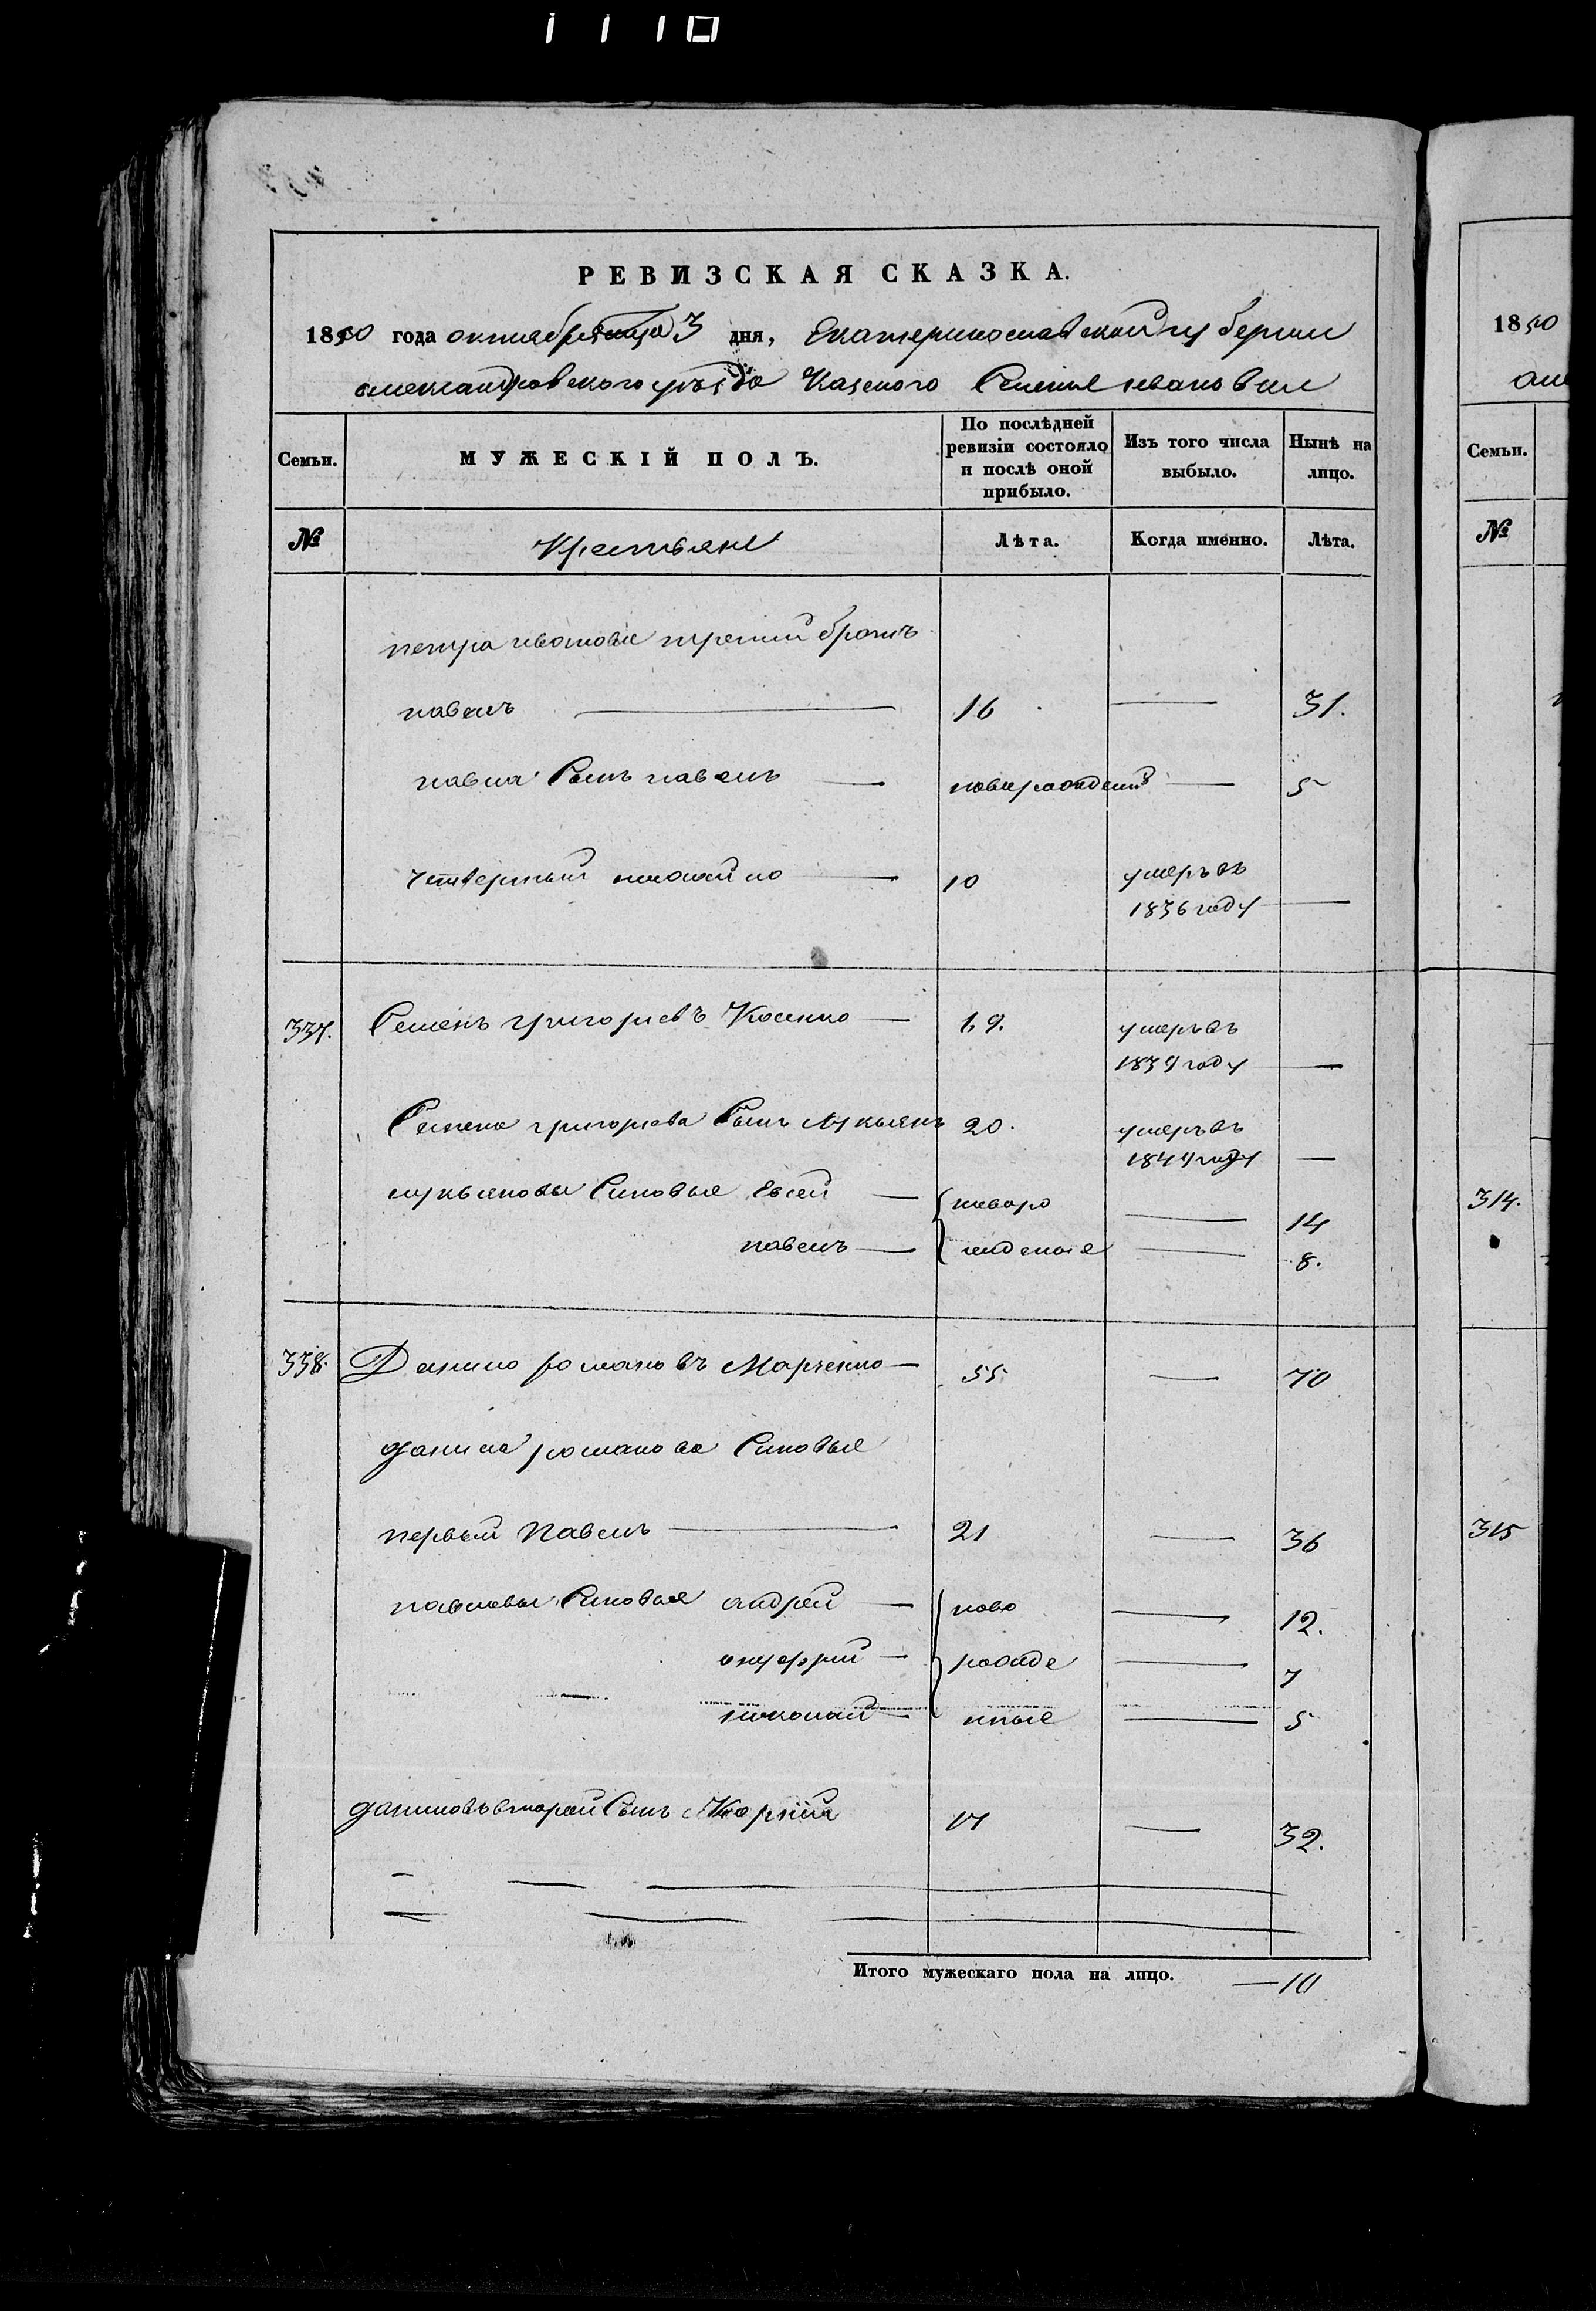 РЕВИЗСКАЯ СКАЗКА.
1850 года октября 3 дня, Екатеринославской губернии
александровского уѣзда Казеного Селенья ивановки
Семьи. МУЖЕСКІЙ ПОЛЪ. По послѣдней ревизіи состояло и послѣ оной прибыло. Изъ того числа выбыло. Нынѣ на лицо.
№ Крестьяне Лѣта. Когда именно. Лѣта.
петра третий братъ
павелъ — 16 — 31.
павла Сынъ павелъ — новорожденый — 5
четвертый николай — 10 умеръ въ
1836 году —
337. Семенъ григорьевъ Косенко — 19. умеръ въ
году —
Семена григорьева Сынъ лукьянъ 20. умеръ въ
1844 году —
лукьяновы Синовья Евсей — новоро — 14
павелъ — жденые — 8.
338. Данило романовъ Марченко — 55 — 70
данила романова Синовья
первый Павелъ — 21 — 36
павловы Синовья андрей — ново — 12.
онуфрий — рожде — 7
николай — нные — 5
даниловъ вторый Сынъ Корній 17 — 32.
Итого мужескаго пола на лицо. — 10
1850
Семьи.
№
314.
315